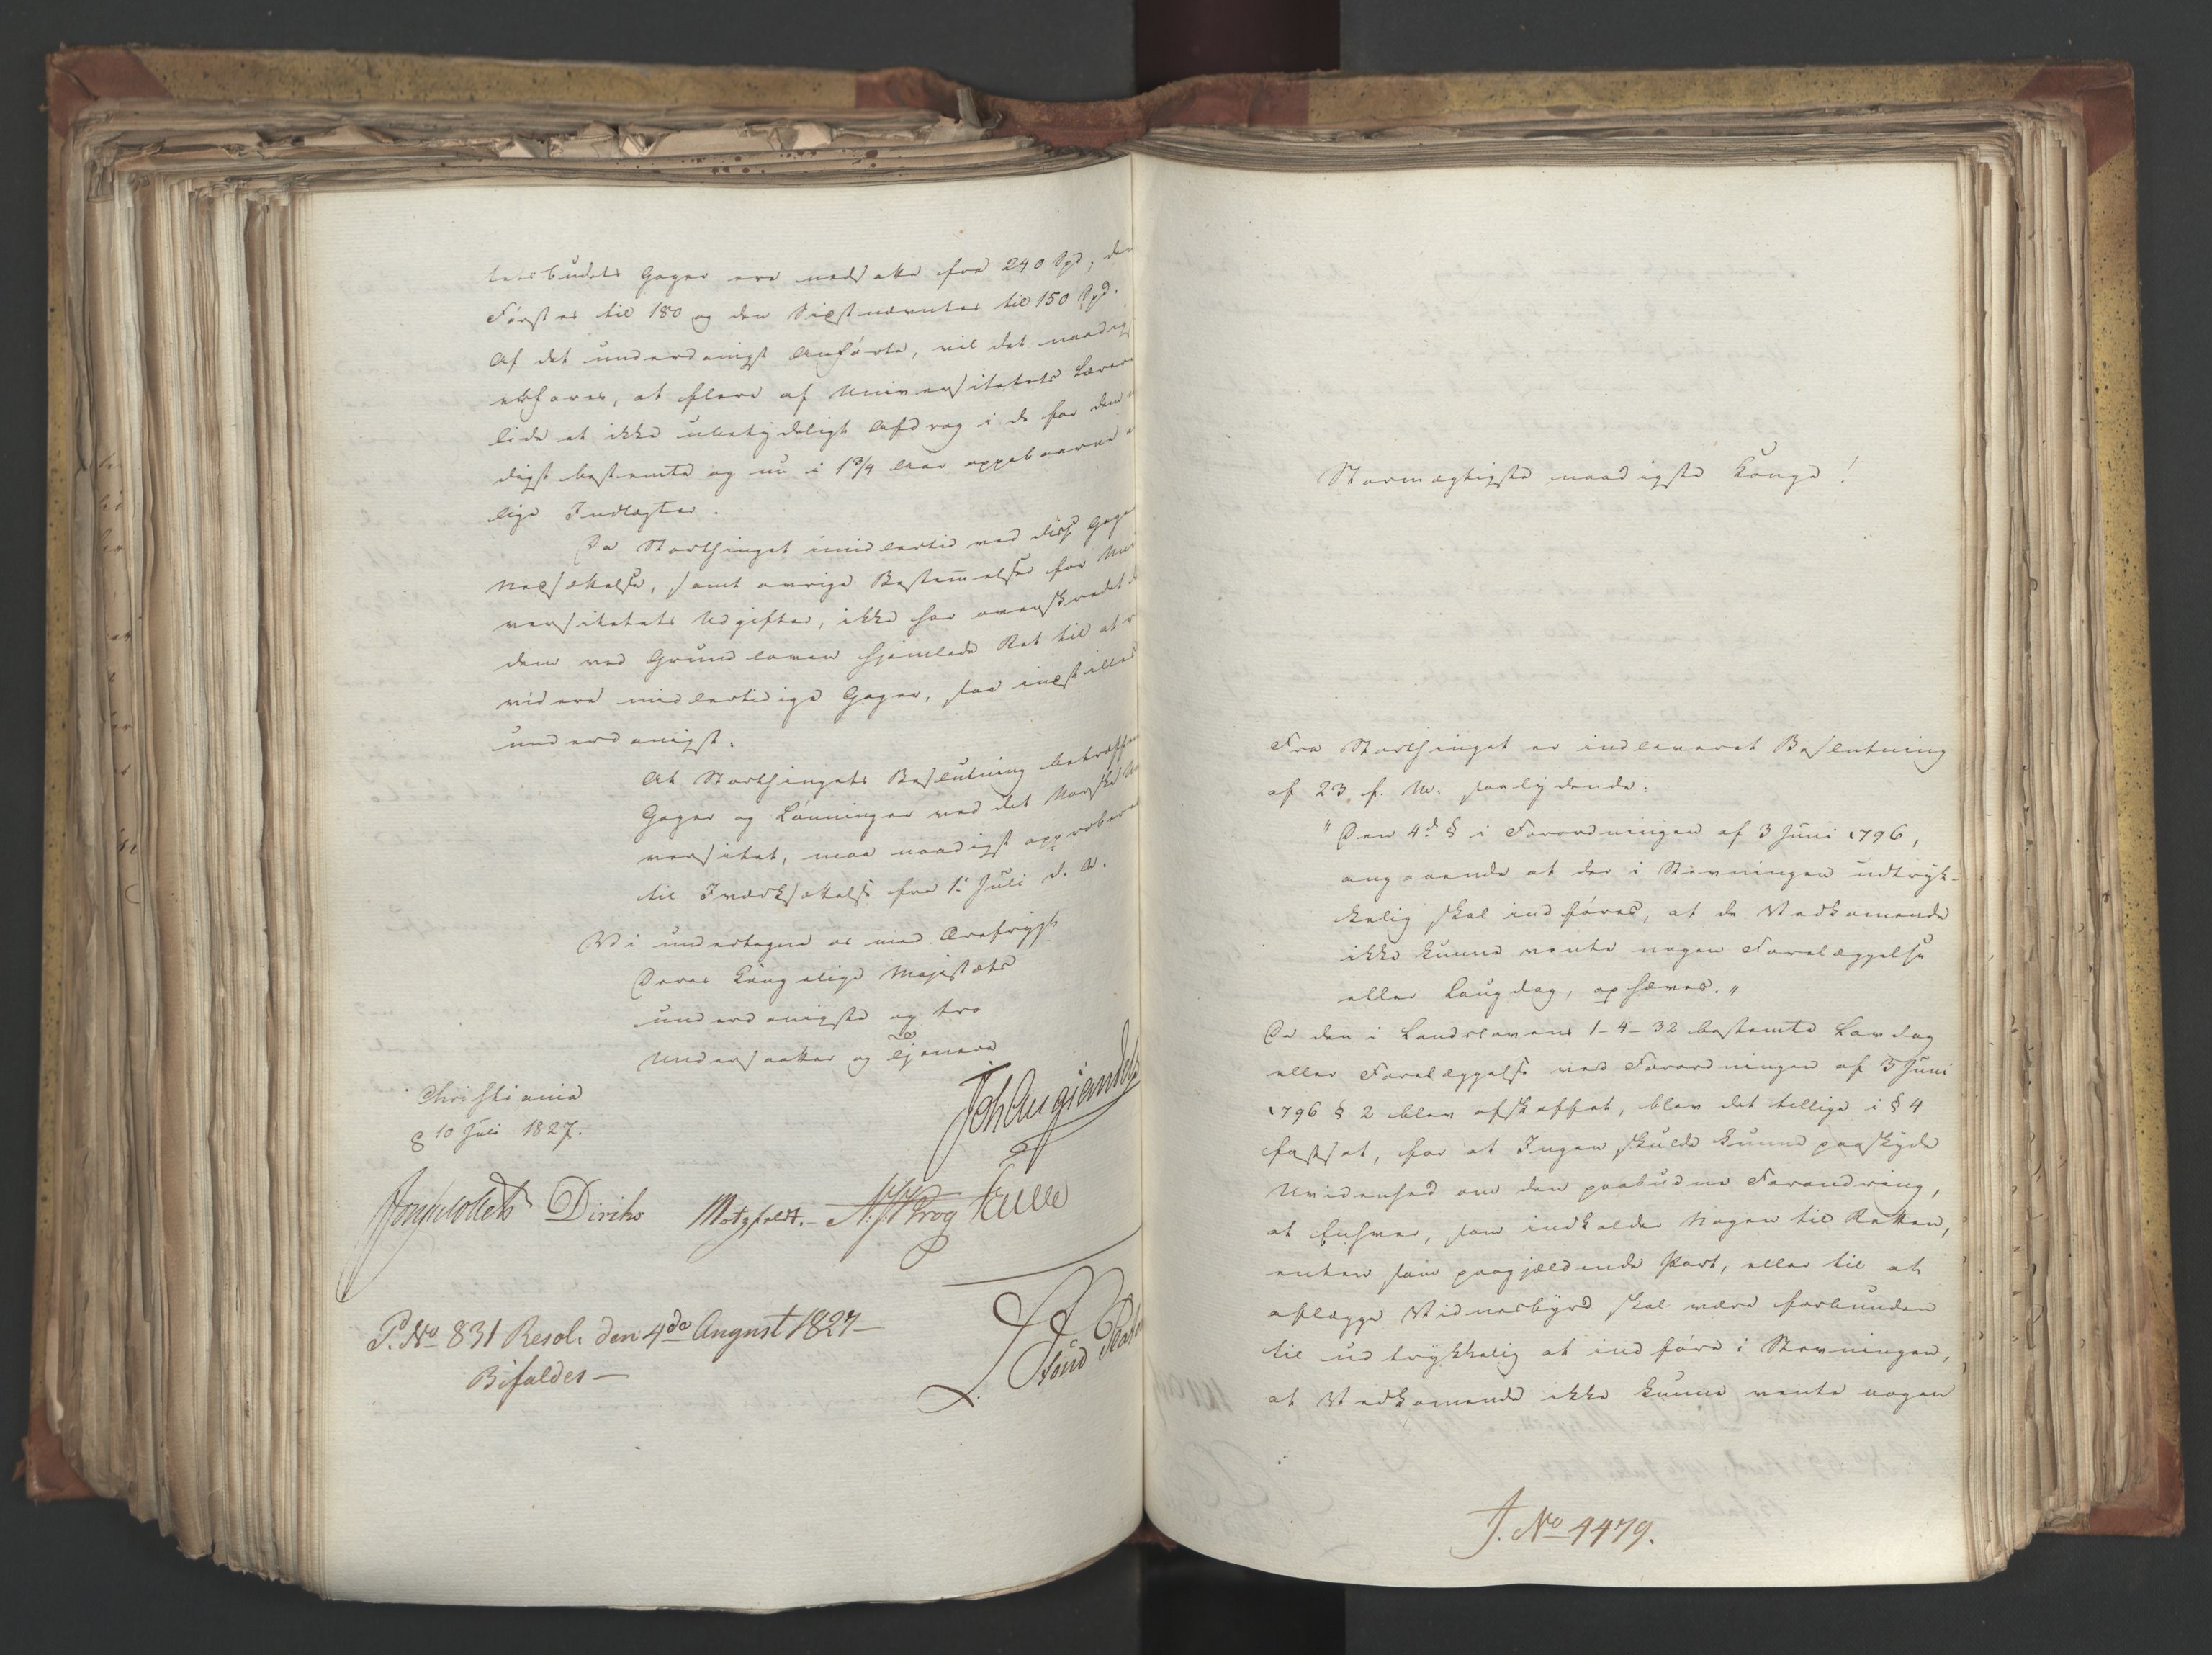 tetsbudets Gager ere nedsatte fra 240 Spd, den
Førstes til 180 og den Sidstnævntes til 150 Spd.
Af det underdanigst Anførte, vil det naadigst
erfares, at flere af Universitetets Lærere
lide et ikke ubetydeligt Afdrag i de for dem
digst bestemte og nu i 1 3/4 Aar oppebaarne
lige Indtægter.
Da Storthinget imidlertid ved disse Gagers
Nedsættelse, samt øvrige Bestemmelser for Uni
versitetets Udgifter, ikke har overskredet
dem ved Grundloven hjemlede Ret til at
videre midlertidige Gager, saa indstilles
underdanigst:
At Storthingets Beslutning betræffende
Gager og Lønninger ved det Norske Uni
versitet, maa naadigst approberes
til Iværksættelse fra 1: Juli d. A.
Vi undertegne os med Ærefrygt
Deres Kongelige Majestæts
underdanigste og tro
Undersaatter og Tjenere
Christiania
d 10 Juli 1827.
Joh Aug Sandels
Jonas Collett Diriks Motzfeldt. N. J. Krog Treschow
P. No 831 Resol: den 4de August 1827 —
Bifaldes —
Stormægtigste naadigste Konge!
Fra Storthinget er indleveret Beslutning
af 23 f. M. saalydende:
"Den 4d § i Forordningen af 3 Juni 1796,
angaaende at der i Stævningen udtryk-
kelig skal indføres, at de Vedkomende
ikke kunne vente nogen Forelæggelse
eller Laugdag, ophæves."
Da den i Landslovens 1-4-32 bestemte Lavdag
eller Forelæggelse ved Forordningen af 3 Juni
1796 § 2 blev afskaffet, blev det tillige i § 4
fastsat, for at Ingen skulde kunne paaskyde
Uvidenhed om den paabudne Forandring,
at Enhver, som indkalder Nogen til Retten,
enten som paagjældende Part, eller til at
aflægge Vidnesbyrd skal være forbunden
til udtrykkelig at indføre i Stevningen,
at Vedkomende ikke kunne vente nogen
J. No 4479.